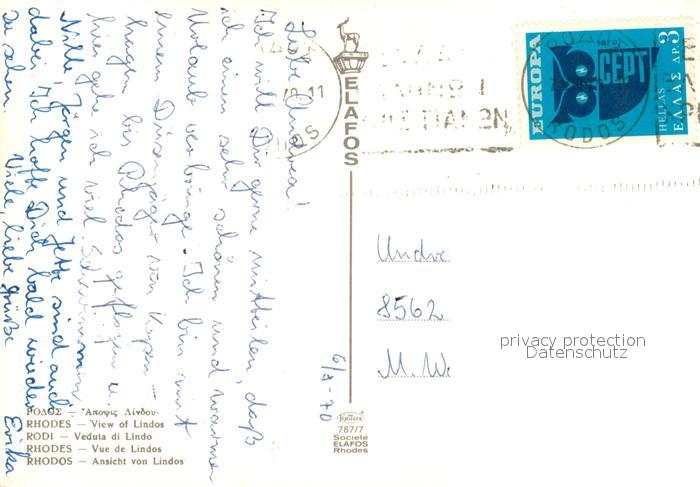 Liebe Andrea!
Ich will Dir gerne mitteilen, daß
ich einen sehr schönen und warmen
Urlaub verbringe. Ich bin mit
einem Düsenjäger von Kopen-
hagen bis Rhodos geflogen u.
hier gehe ich viel Schwimmen
Nille, Jörgen und Jette sind auch
dabei. Ich hoffe Dich bald wieder
zu sehen. Viele, liebe Grüße
Erika
6/8-70
ELAFOS
EUROPA
1970
CEPT
HELLAS
ΕΛΛΑΣ ΔΡ. 3
RODOS
Andre
8562
M. W.
privacy protection
Datenschutz
ΡΟΔΟΣ — Ἄποψις Λίνδου
RHODES — View of Lindos
RODI — Veduta di Lindo
RHODES — Vue de Lindos
RHODOS — Ansicht von Lindos
787/7
Société
ELAFOS
Rhodes